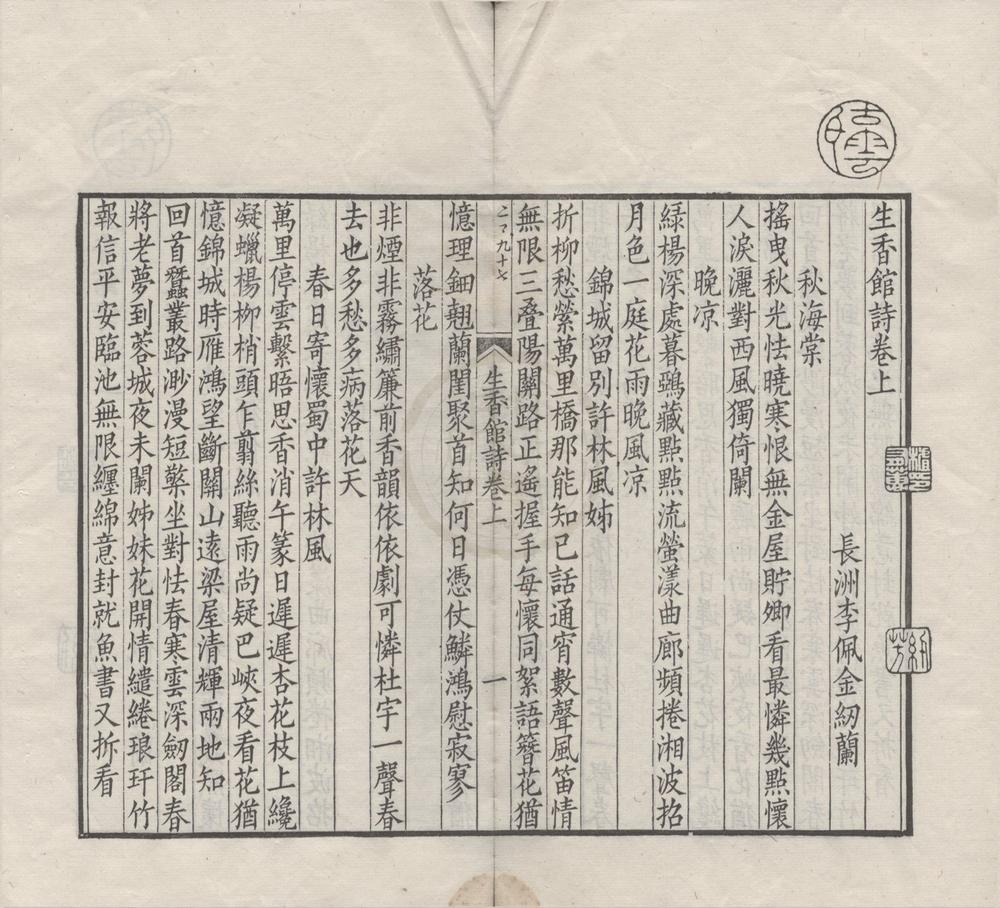 生香館詩卷上
長洲李佩金紉蘭
秋海棠
搖曳秋光怯曉寒恨無金屋貯卿看最憐幾點懷
人淚灑對西風獨倚闌
晚凉
綠楊深處暮鵶藏點點流螢漾曲廊頻捲湘波招
月色一庭花雨晚風凉
錦城留別許林風姊
折柳愁縈萬里橋那能知己話通宵數聲風笛情
無限三疊陽關路正遙握手每懷同絮語簪花猶
生香館詩卷上
一
憶理鈿翹蘭閨聚首知何日憑仗鱗鴻慰寂寥
落花
非煙非霧繡簾前香韻依依劇可憐杜宇一聲春
去也多愁多病落花天
春日寄懷蜀中許林風
萬里停雲繫晤思香消午篆日遲遲杏花枝上纔
凝蠟楊柳梢頭乍翦絲聽雨尚疑巴峽夜看花猶
憶錦城時雁鴻望斷關山遠梁屋清輝兩地知
回首蠶叢路渺漫短檠坐對怯春寒雲深劒閣春
將老夢到蓉城夜未闌姊妹花開情繾綣琅玕竹
報信平安臨池無限纏綿意封就魚書又拆看